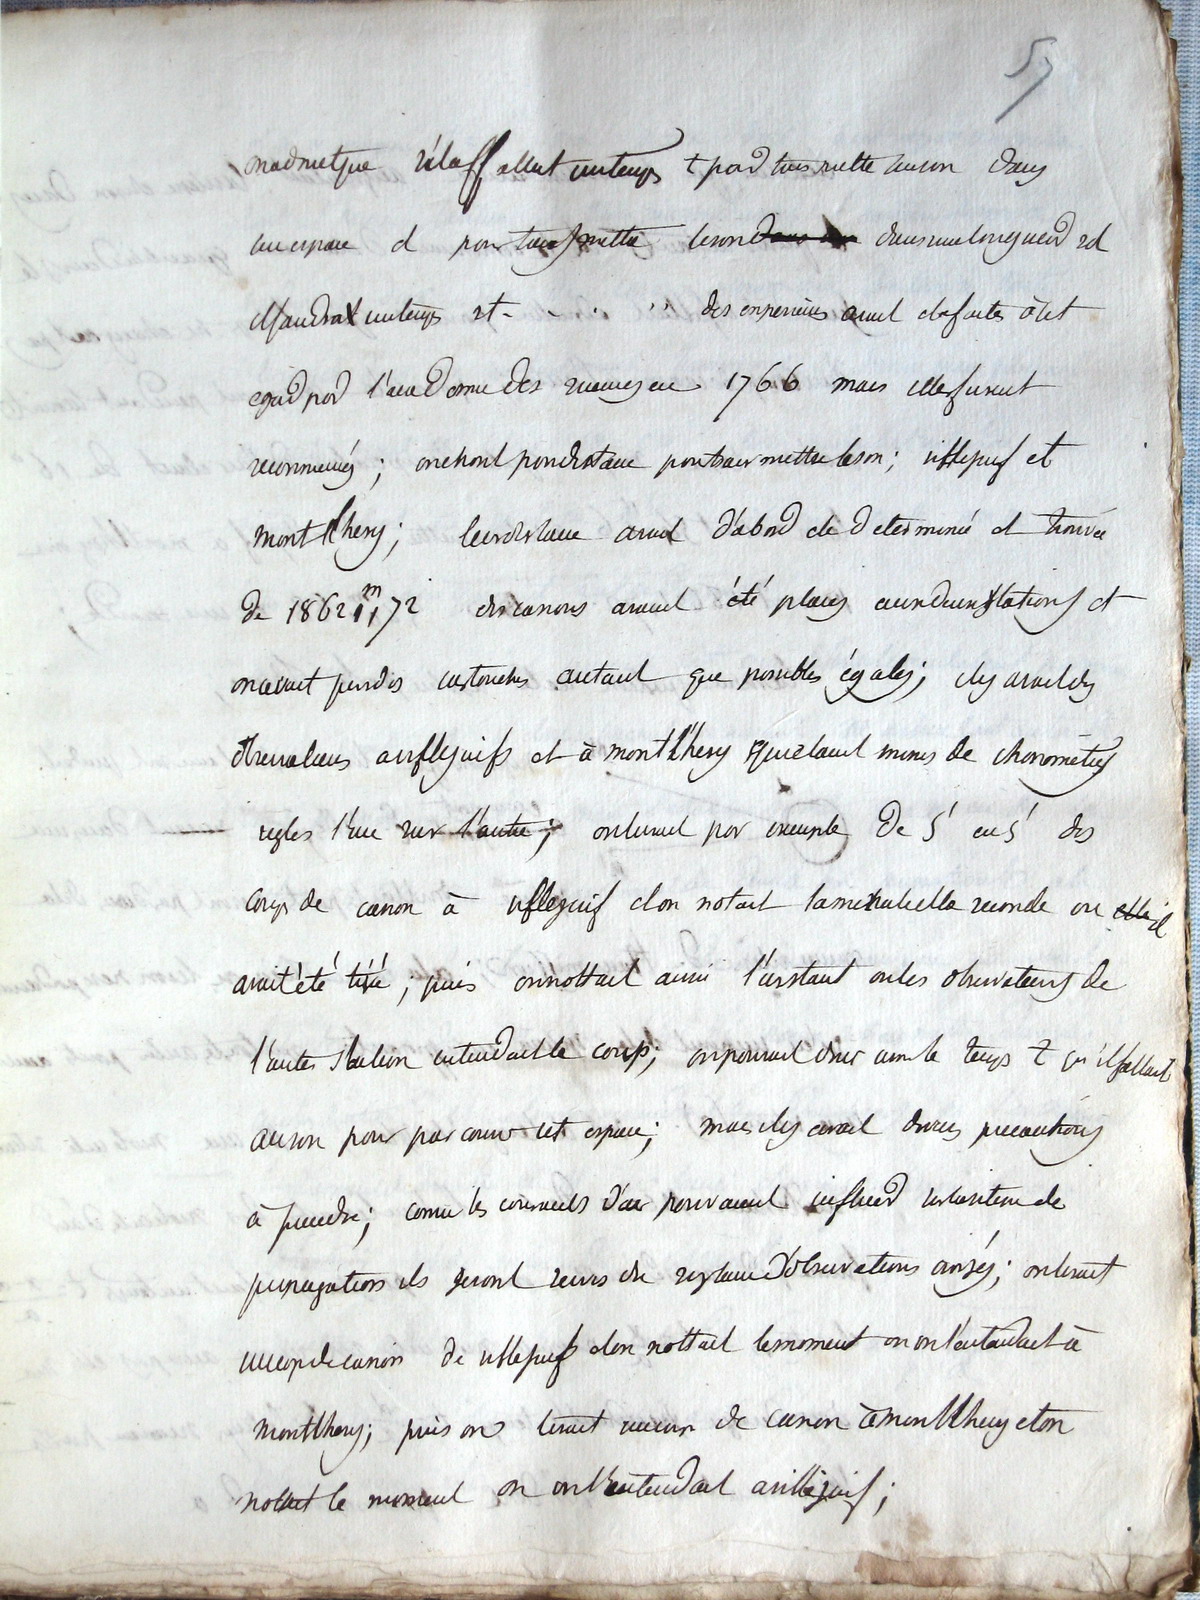 57
on admet que s'il a fallait un temps t pour transmettre au son dans
un espace d pour transmettre le son dans une longueur 2d
il faudrait un temps 2t - . . . . des experiences avait ete faites à cet
egard par l'academie des sciences en 1766 mais elles furent
recommencés ; on choisit pour distance pour transmettre le son ; villejuif et
montlhery ; leur distance avait d'abord ete determiné et trouvée
de 18621m,72 des canons avaient été placés aux deux stations et
on avait pris des cartouches autant que possibles égales ; il y avait des
observateurs a villejuif et à montlhery qui etaient munis de chronometres
reglés l'un sur l'autre ; on tirait par exemple de 5' en 5' des
coups de canon à villejuif et on notait la minute et la seconde ou elle il
avait été tiré ; puis on nottait aussi l'instant ou les observateurs de
l'autre station entendait le coup ; on pouvait donc avoir le temps t qu'il fallait
au son pour parcourir cet espace ; mais il y avait divers precautions
à prendre ; comme les courants d'air pouvaient influer sur la vitesse de
propagation ils seront servis de systeme d'observations croisés ; on tirait
un coup de canon de villejuif et on nottait le moment ou on l'entendait à
montlhery ; puis on tirait un coup de canon à montlhery et on
nottait le moment ou on l'entendait a villejuif ;